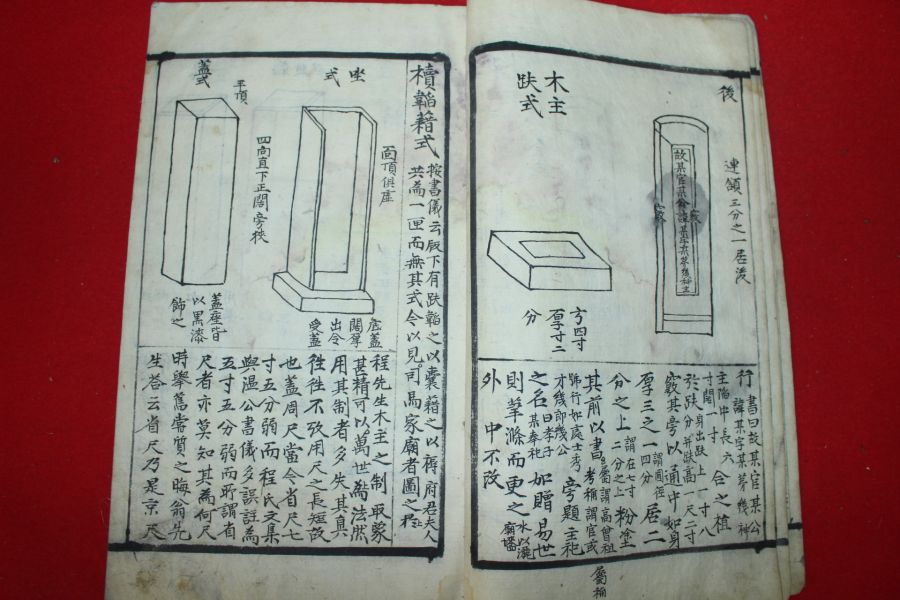 後
連領三分之一居後
故某官某公諱某字某第幾神主
竅
竅
木主
趺式
方四寸
厚寸二
分
行書曰故某官某公
諱某字某茅幾神
主陷中長六
寸闊一寸 合之植
於趺身出趺上一寸八
分并趺高一尺二寸
竅其旁以通中如身
厚三之一謂圓徑
四分 居二
分之上謂在七寸
二分之上 粉塗
其前以書屬謂高曾祖
考稱謂官或
號行如處士秀
才幾郎幾公 旁題主祀
屬稱
之名曰孝子
某奉祀 如贈易世
則筆滌而更之水以洒
廟墻
外中不改
櫝韜藉式 按書儀云版下有趺韜之以囊藉之以褥府君夫人
共為一匣而無其式今以見司馬家廟者圖之
坐式
面頂俱虛
底蓋
闊厚
出令
受蓋
蓋式
平頂
四向直下正闊旁狹
蓋座皆
以黒漆
飾之
程先生木主之制取象
甚精可以萬世為法然
用其制者多失其真
徃徃不攷用尺之長短故
也蓋周尺當今省尺七
寸五分弱而程氏文集
與溫公書儀多誤註爲
五寸五分弱而所謂省
尺者亦莫知其為何尺
時舉舊嘗質之晦翁先
生荅云省尺乃是京尺